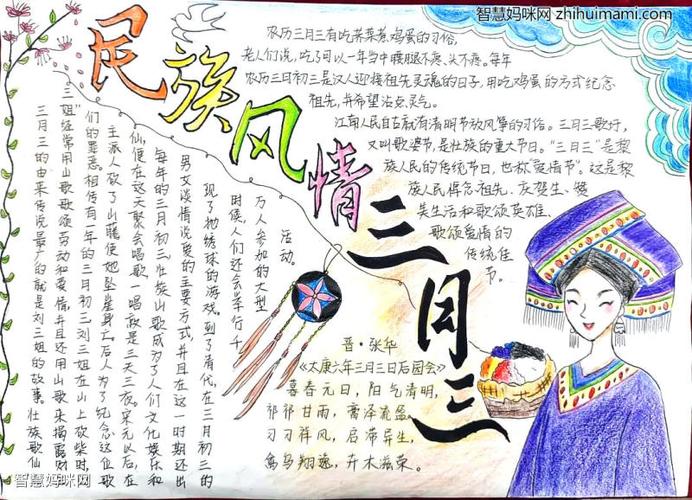 智慧妈咪网 zhihuimami.com
民族风情三月三
农历三月三有吃荠菜煮鸡蛋的习俗,
老人们说,吃了可以一年当中腰腿不疼、头不疼。每年
农历三月初三是汉人迎接祖先灵魂的日子,用吃鸡蛋的方式纪念
祖先,并希望沾点灵气。
江南人民自古就有清明节放风筝的习俗。三月三歌圩,
又叫歌婆节,是壮族的重大节日。“三月三”是黎
族人民的传统节日,也称“爱情节”。这是黎
族人民悼念祖先、庆贺生、赞
美生活和歌颂英雄、
歌颂爱情的
传统佳
节。
三月三的由来传说最广的就是刘三姐的故事。壮族歌仙
三姐”经常用山歌歌颂劳动和爱情,并且还用山歌来揭露财
们的罪恶。相传有一年的三月初三刘三姐在山上砍柴时,
主派人砍了山藤使她坠崖身亡,后人为了纪念这位歌
仙,便在这天聚会唱歌,一唱就是三天三夜。宋元以后,在
每年的三月初三壮族山歌成为了人们文化娱乐和
男女谈情说爱的主要方式,并且在这一时期还出
现了抛绣球的游戏。到了清代,在三月初三的
时候,人们还会举行千
万人参加的大型
活动。
晋·张华
《太康六年三月三日后园会》
暮春元日,阳气清明,
祁祁甘雨,膏泽流盈。
习习祥风,启滞导生,
禽鸟翔逸,卉木滋荣。
智慧妈咪网